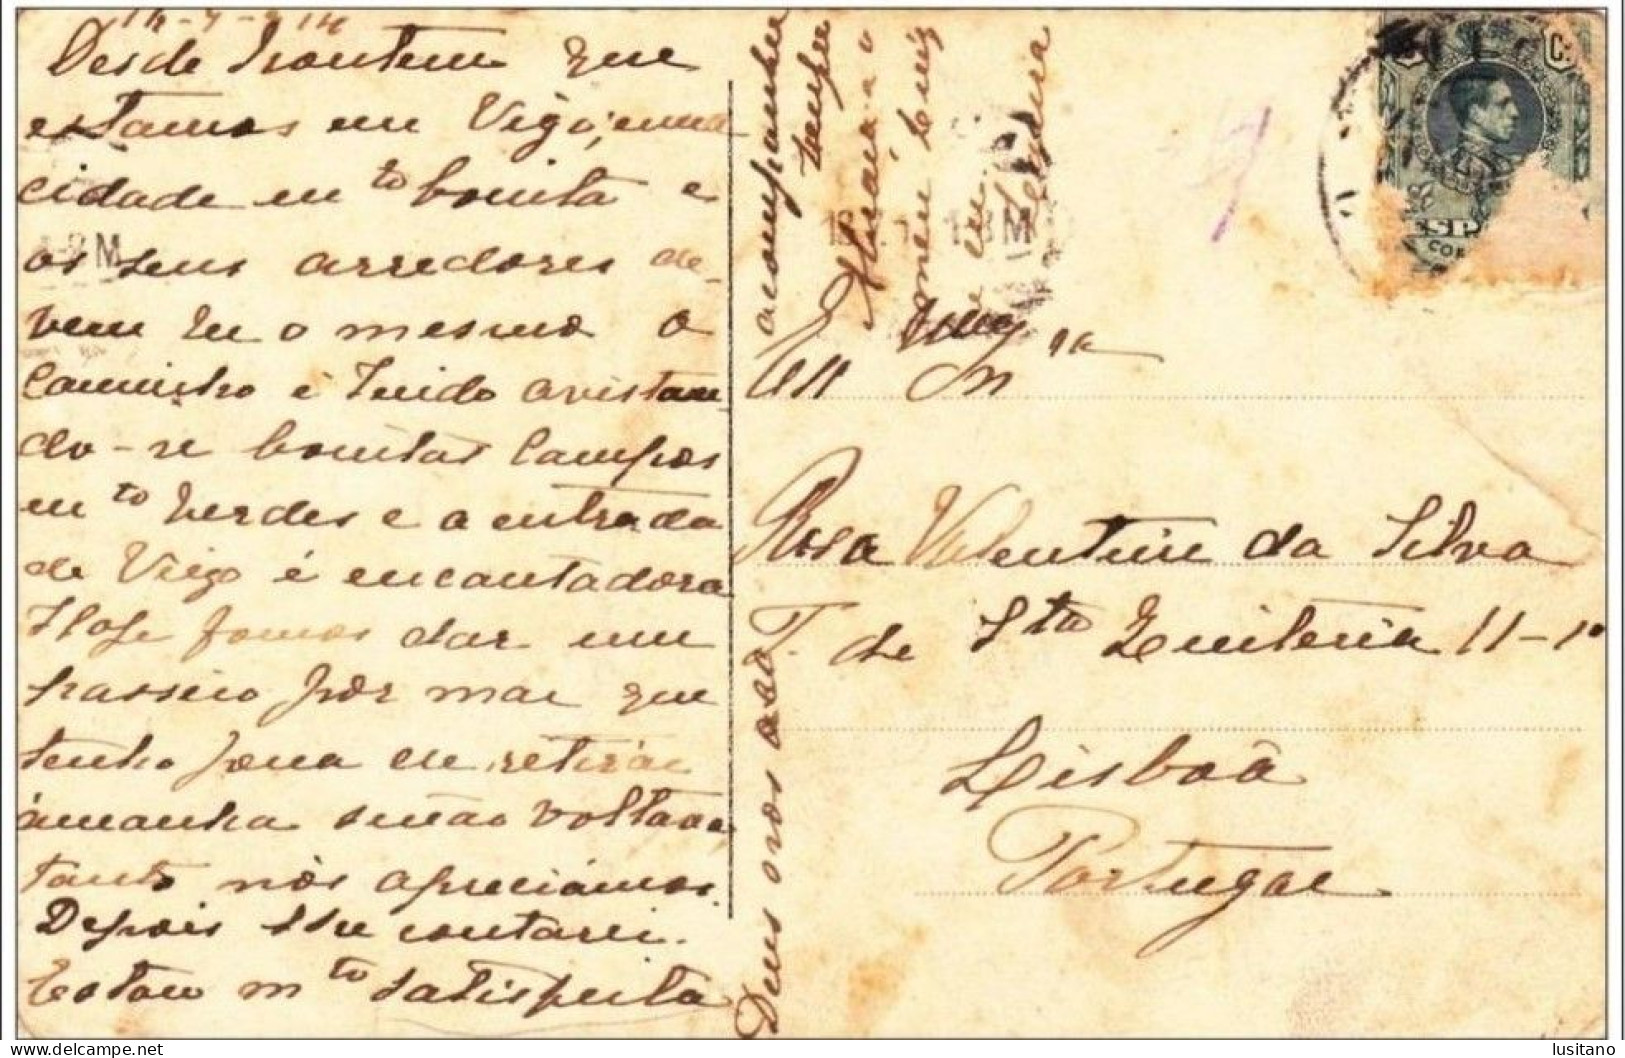 14-7-914
Desde hontem que
estamos em Vigo, uma
cidade m to bonita e
os seus arredores de-
vem ser o mesmo o
Caminho é lindo avistan-
do-se bonitas Campos
m to verdes e a entrada
de Vigo é encantadora
Hoje fomos dar um
passeio por mar que
tenho pena em retirar
ámanhã senão voltava,
tanto nós apreciámos.
Depois lhe contarei.
Estou m to satisfeita
Deus nos
acompanhe
sempre
Ex ma
Rosa Valentim da Silva
T. de S ta Quiteria 11-1º
Lisboâ
Portugal
C.
ESP
COR
lusitano
delcampe.net